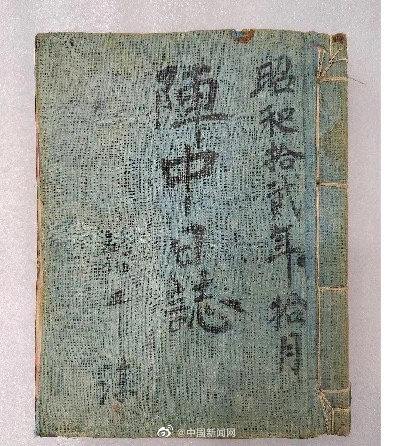 昭和拾貳年拾月
陣中日誌
@中国新闻网